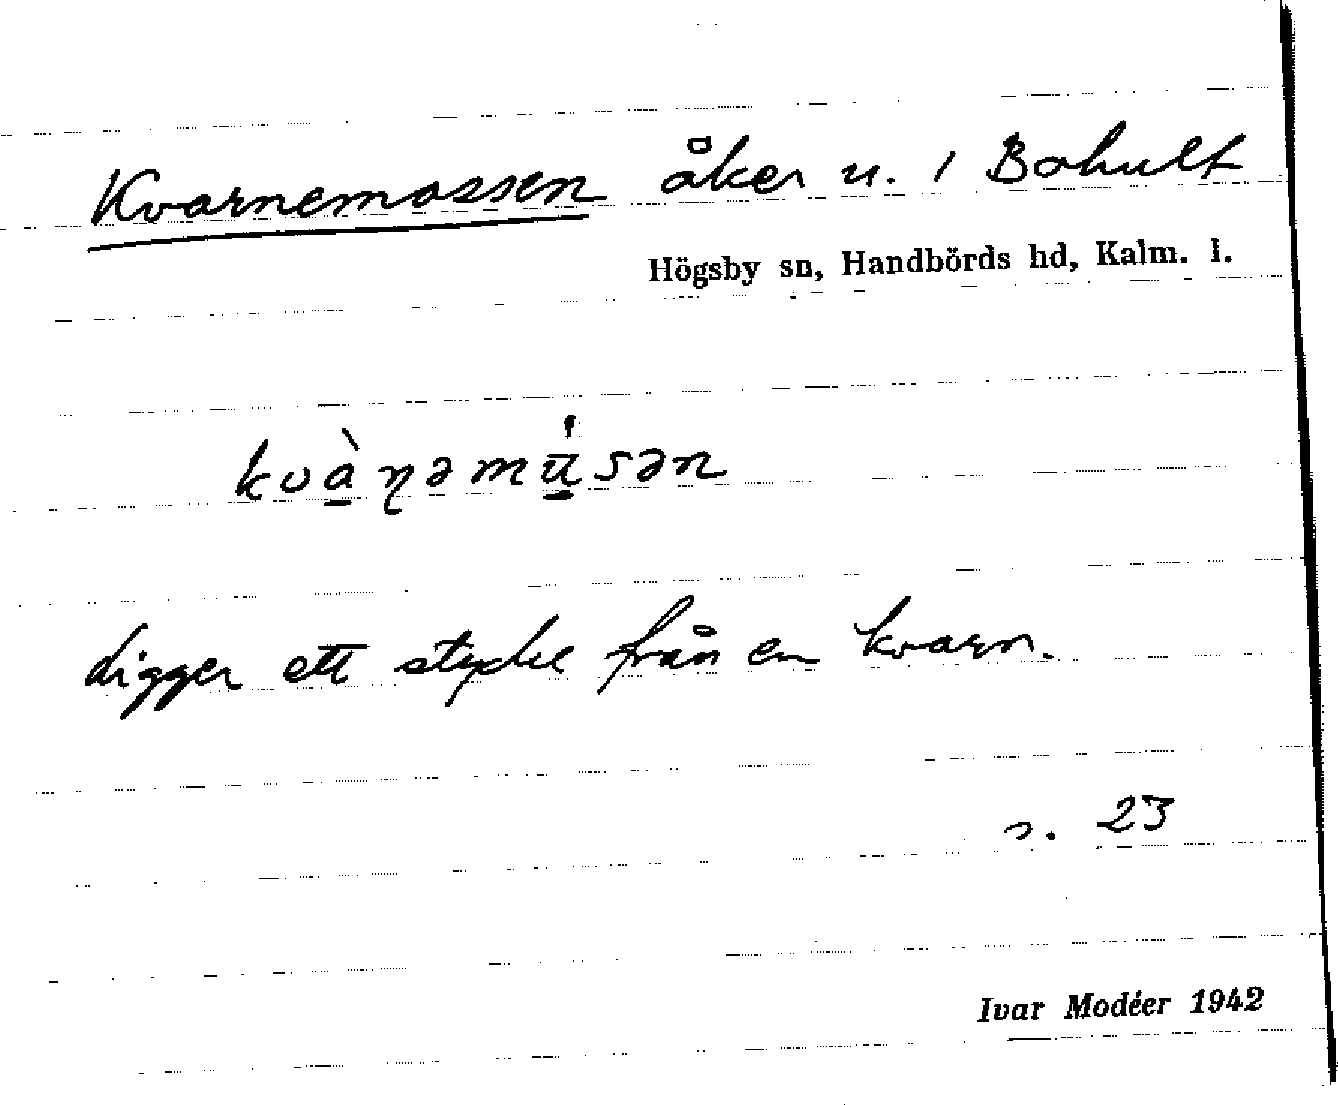 Kvarnemossen åker u. 1 Bohult
Högsby sn, Handbörds hd, Kalm. l.
kvàɳəmu̇sən
ligger ett stycke från en kvarn.
s. 23
Ivar Modéer 1942